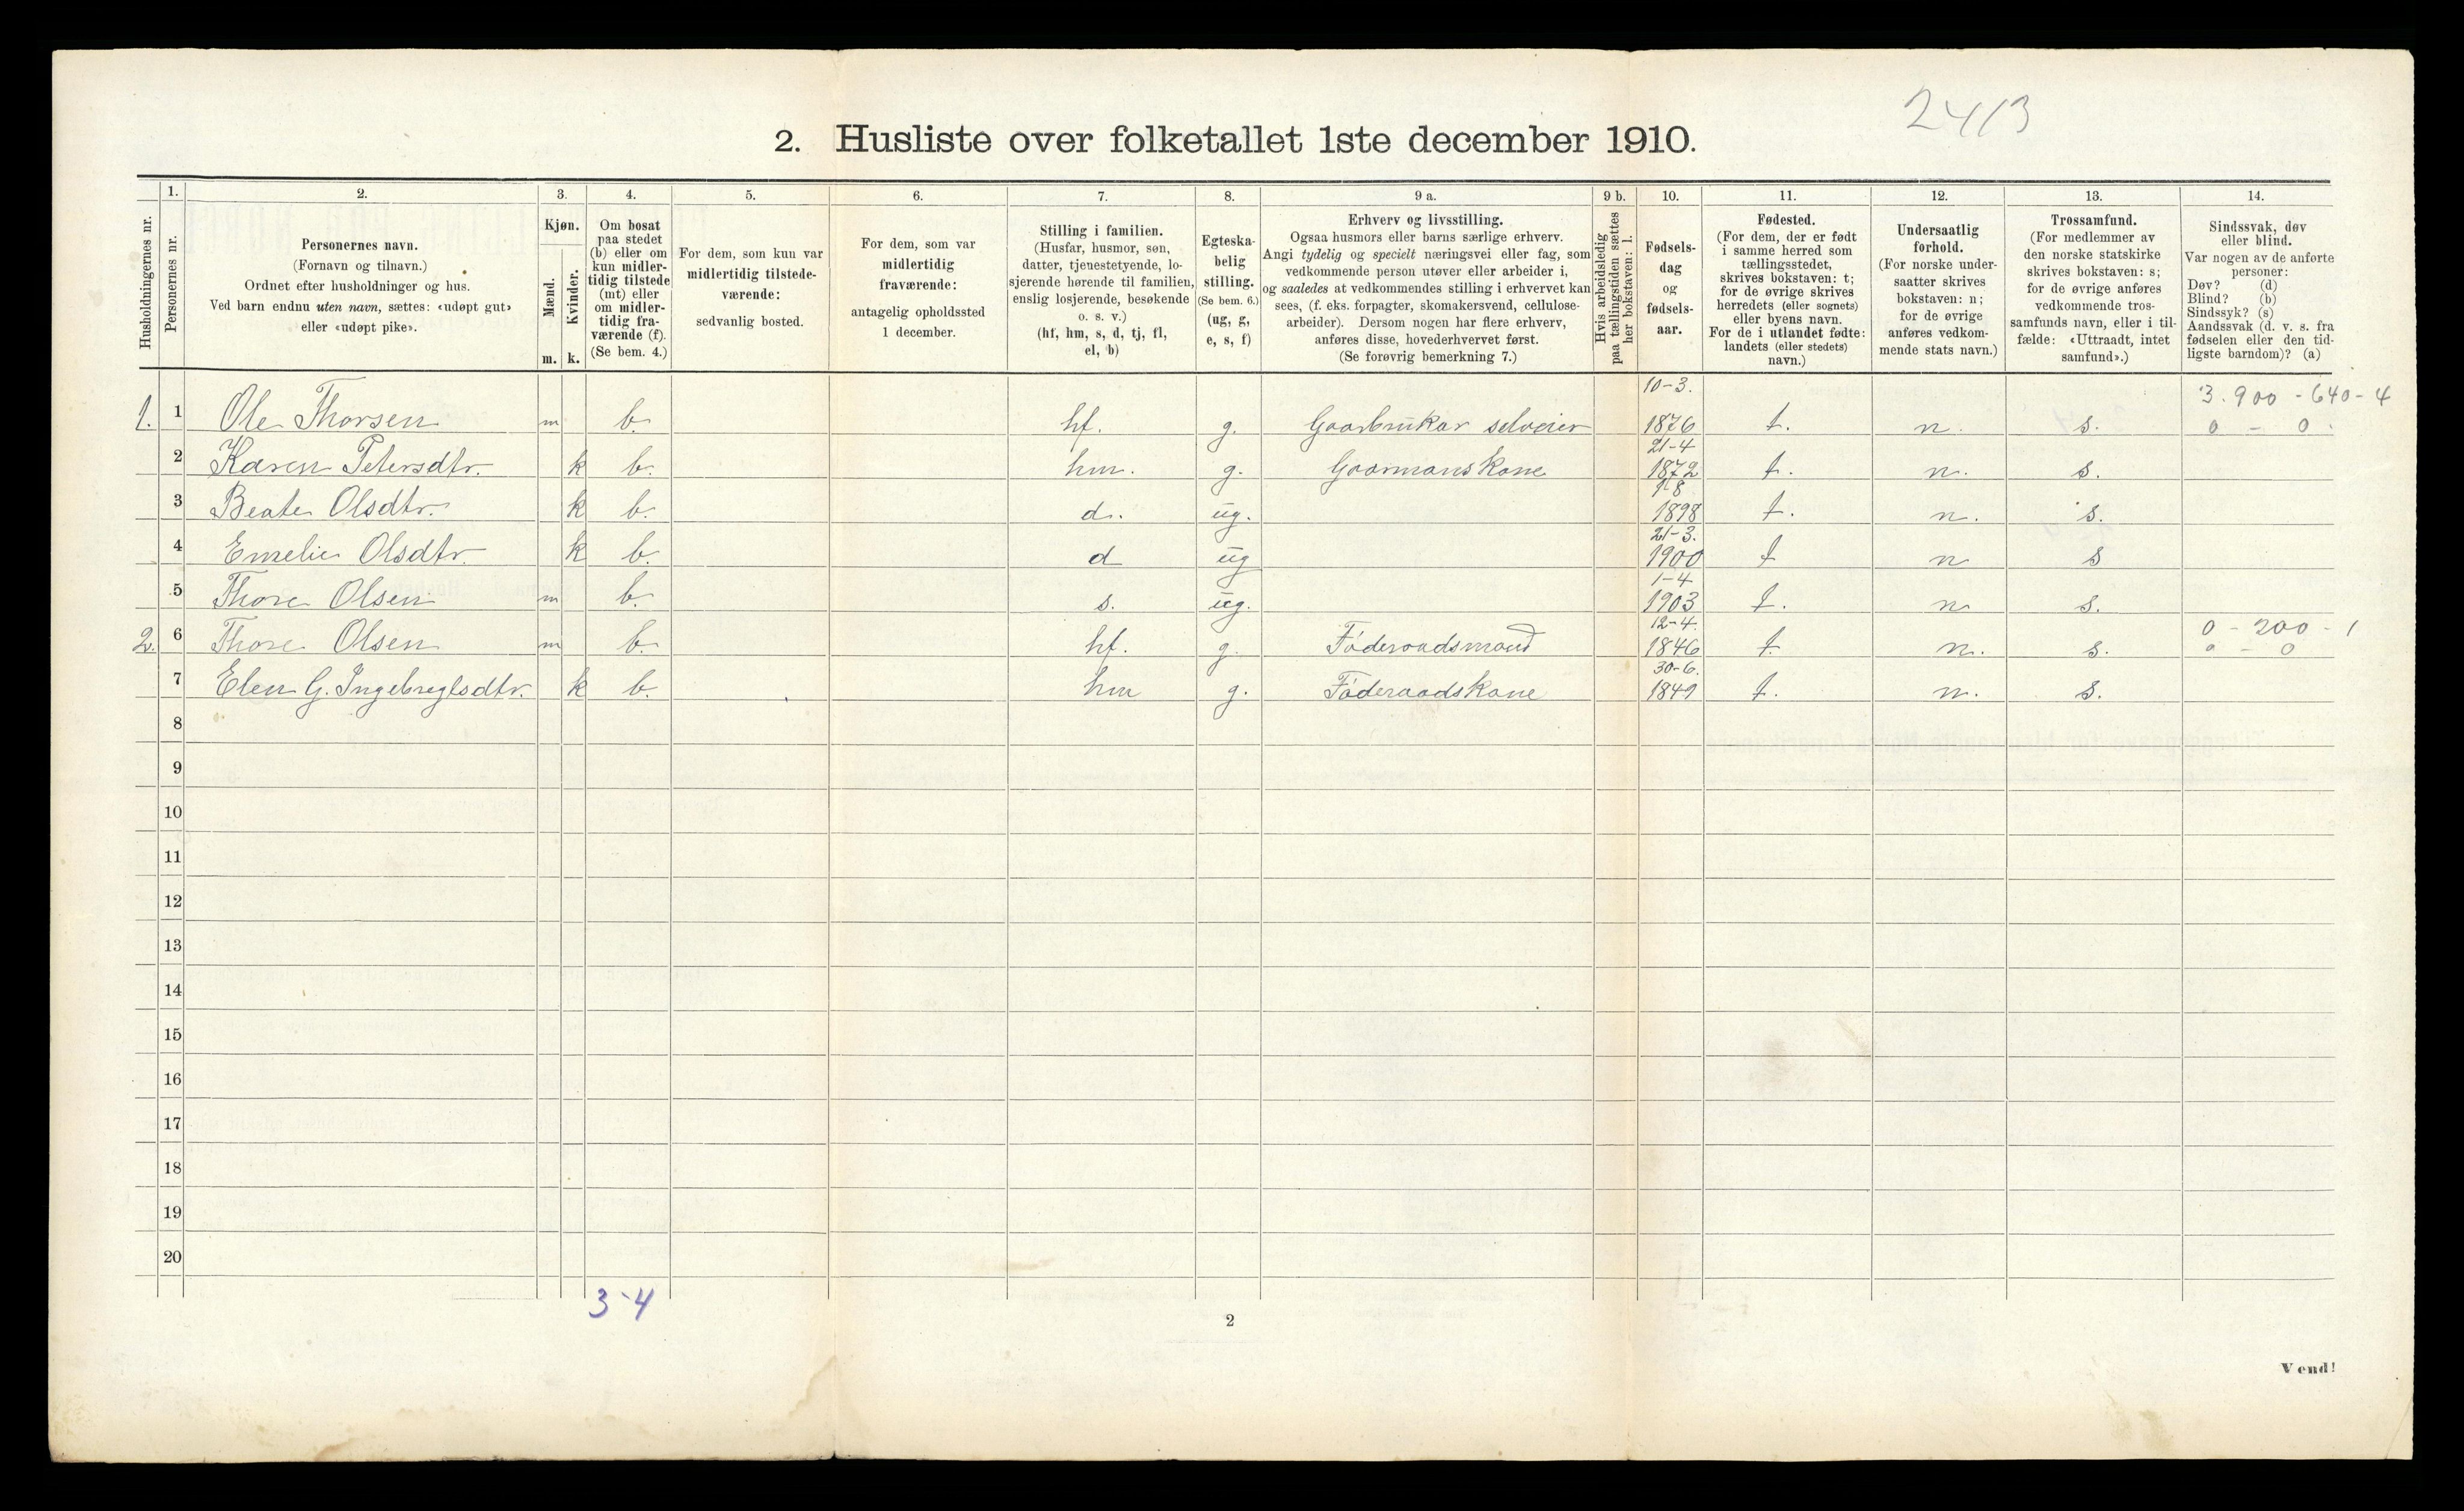 2413
2. Husliste over folketallet 1ste december 1910.
Husholdningernes nr.
1. Personernes nr.
2. Personernes navn. (Fornavn og tilnavn.) Ordnet efter husholdninger og hus. Ved barn endnu uten navn, sættes: «udøpt gut» eller «udøpt pike».
3. Kjøn. Mænd. m. Kvinder. k.
4. Om bosat paa stedet (b) eller om kun midlertidig tilstede (mt) eller om midlertidig fraværende (f). (Se bem. 4.)
5. For dem, som kun var midlertidig tilstedeværende: sedvanlig bosted.
6. For dem, som var midlertidig fraværende: antagelig opholdssted 1 december.
7. Stilling i familien. (Husfar, husmor, søn, datter, tjenestetyende, losjerende hørende til familien, enslig losjerende, besøkende o. s. v.) (hf, hm, s, d, tj, fl, el, b)
8. Egteskabelig stilling. (Se bem. 6.) (ug, g, e, s, f)
9 a. Erhverv og livsstilling. Ogsaa husmors eller barns særlige erhverv. Angi tydelig og specielt næringsvei eller fag, som vedkommende person utøver eller arbeider i, og saaledes at vedkommendes stilling i erhvervet kan sees, (f. eks. forpagter, skomakersvend, cellulosearbeider). Dersom nogen har flere erhverv, anføres disse, hovederhvervet først. (Se forøvrig bemerkning 7.)
9 b. Hvis arbeidsledig paa tællingstiden sættes her bokstaven: l.
10. Fødselsdag og fødselsaar.
11. Fødested. (For dem, der er født i samme herred som tællingsstedet, skrives bokstaven: t; for de øvrige skrives herredets (eller sognets) eller byens navn. For de i utlandet fødte: landets (eller stedets) navn.)
12. Undersaatlig forhold. (For norske undersaatter skrives bokstaven: n; for de øvrige anføres vedkommende stats navn.)
13. Trossamfund. (For medlemmer av den norske statskirke skrives bokstaven: s; for de øvrige anføres vedkommende trossamfunds navn, eller i tilfælde: «Uttraadt, intet samfund».)
14. Sindssvak, døv eller blind. Var nogen av de anførte personer: Døv? (d) Blind? (b) Sindssyk? (s) Aandssvak (d. v. s. fra fødselen eller den tidligste barndom)? (a)
10-3. 3.900 - 640 - 4
1. 1 Ole Thorsen m b. hf. g. Gaarbrukar selveier 1876 t. n. s. 0 - 0.
21-4
2 Karen Petersdtr. k b. hm. g. Gaarmans Kone 1872 t. n. s.
1-8
3 Beate Olsdtr. k b. d. ug. 1898 t. n. s.
21-3.
4 Emelie Olsdtr. k b. d ug 1900 t n s
1-4
5 Thore Olsen m b. s. ug. 1903 t. n s.
12-4. 0 - 200 - 1
2. 6 Thore Olsen m b. hf. g. Føderaadsmand 1846 t. n. s. 0 - 0
30-6.
7 Elen G. Ingebregtsdtr. k b. hm g. Føderaads Kone 1849 t. n. s.
8
9
10
11
12
13
14
15
16
17
18
19
20
3-4
2
Vend!